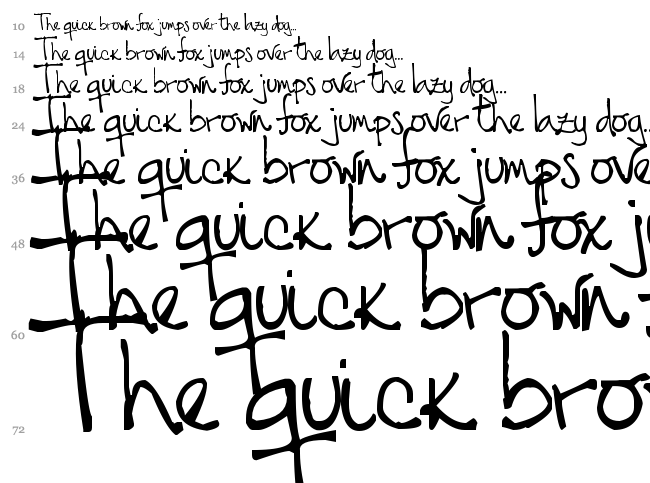 10 The quick brown fox jumps over the lazy dog...
14 The quick brown fox jumps over the lazy dog...
18 The quick brown fox jumps over the lazy dog...
24 The quick brown fox jumps over the lazy dog.
36 The quick brown fox jumps ove
48 The quick brown fox j
60 The quick brown
72 The quick bro